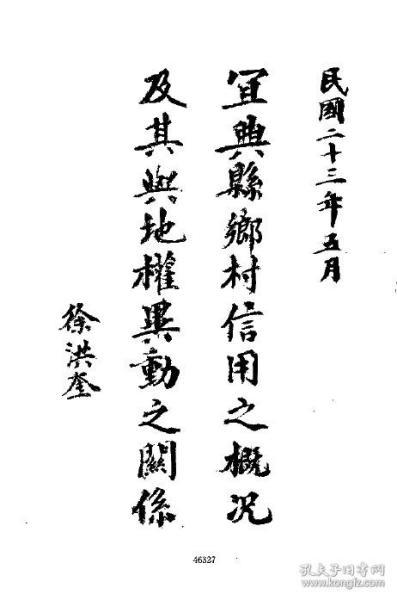 民國二十三年五月
宜興縣鄉村信用之概况
及其與地權異動之關係
徐洪奎
46327
孔夫子旧书网
www.kongfz.com